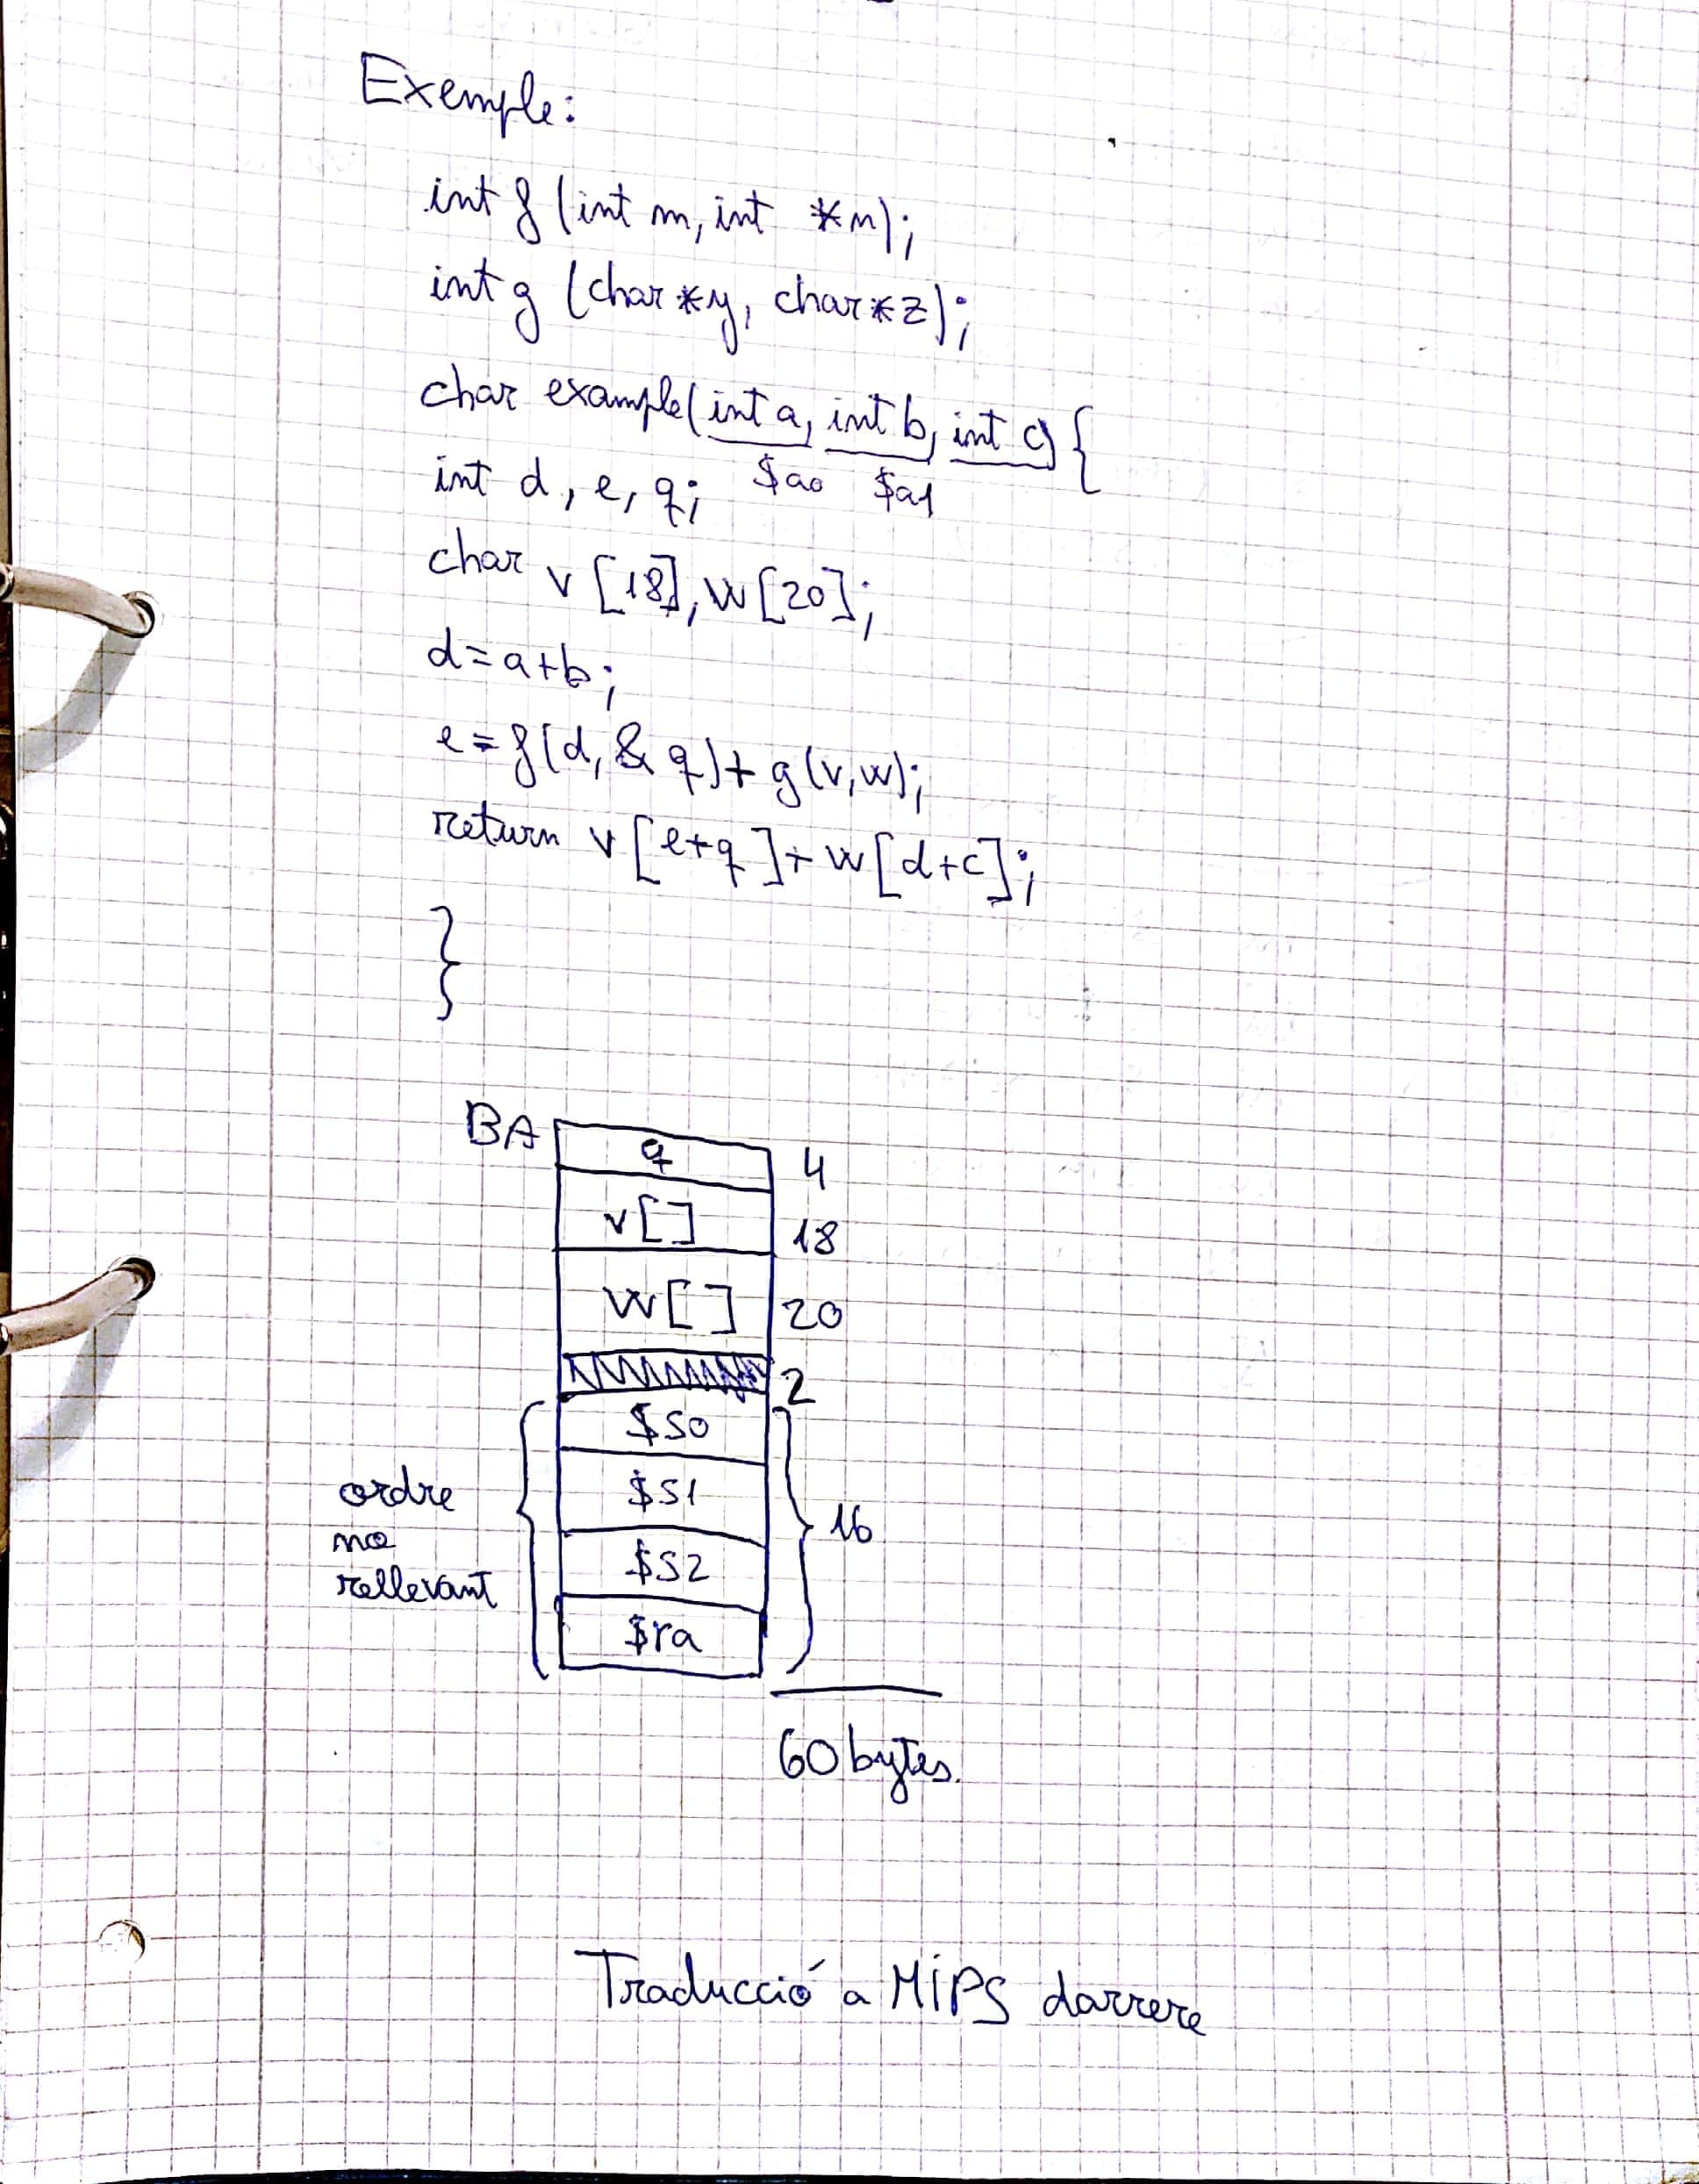 Exemple:
int f (int m, int *n);
int g (char *y, char *z);
char example(int a, int b, int c) {
$a0 $a1
int d, e, q;
char v [18], w [20];
d=a+b;
e = f(d, & q)+ g(v,w);
return v [e+q]+ w[d+c];
}
BA
q 4
v[] 18
w[] 20
2
$s0
$s1
$s2
$ra
16
ordre
no
rellevant
60 bytes.
Traducció a MIPS darrere